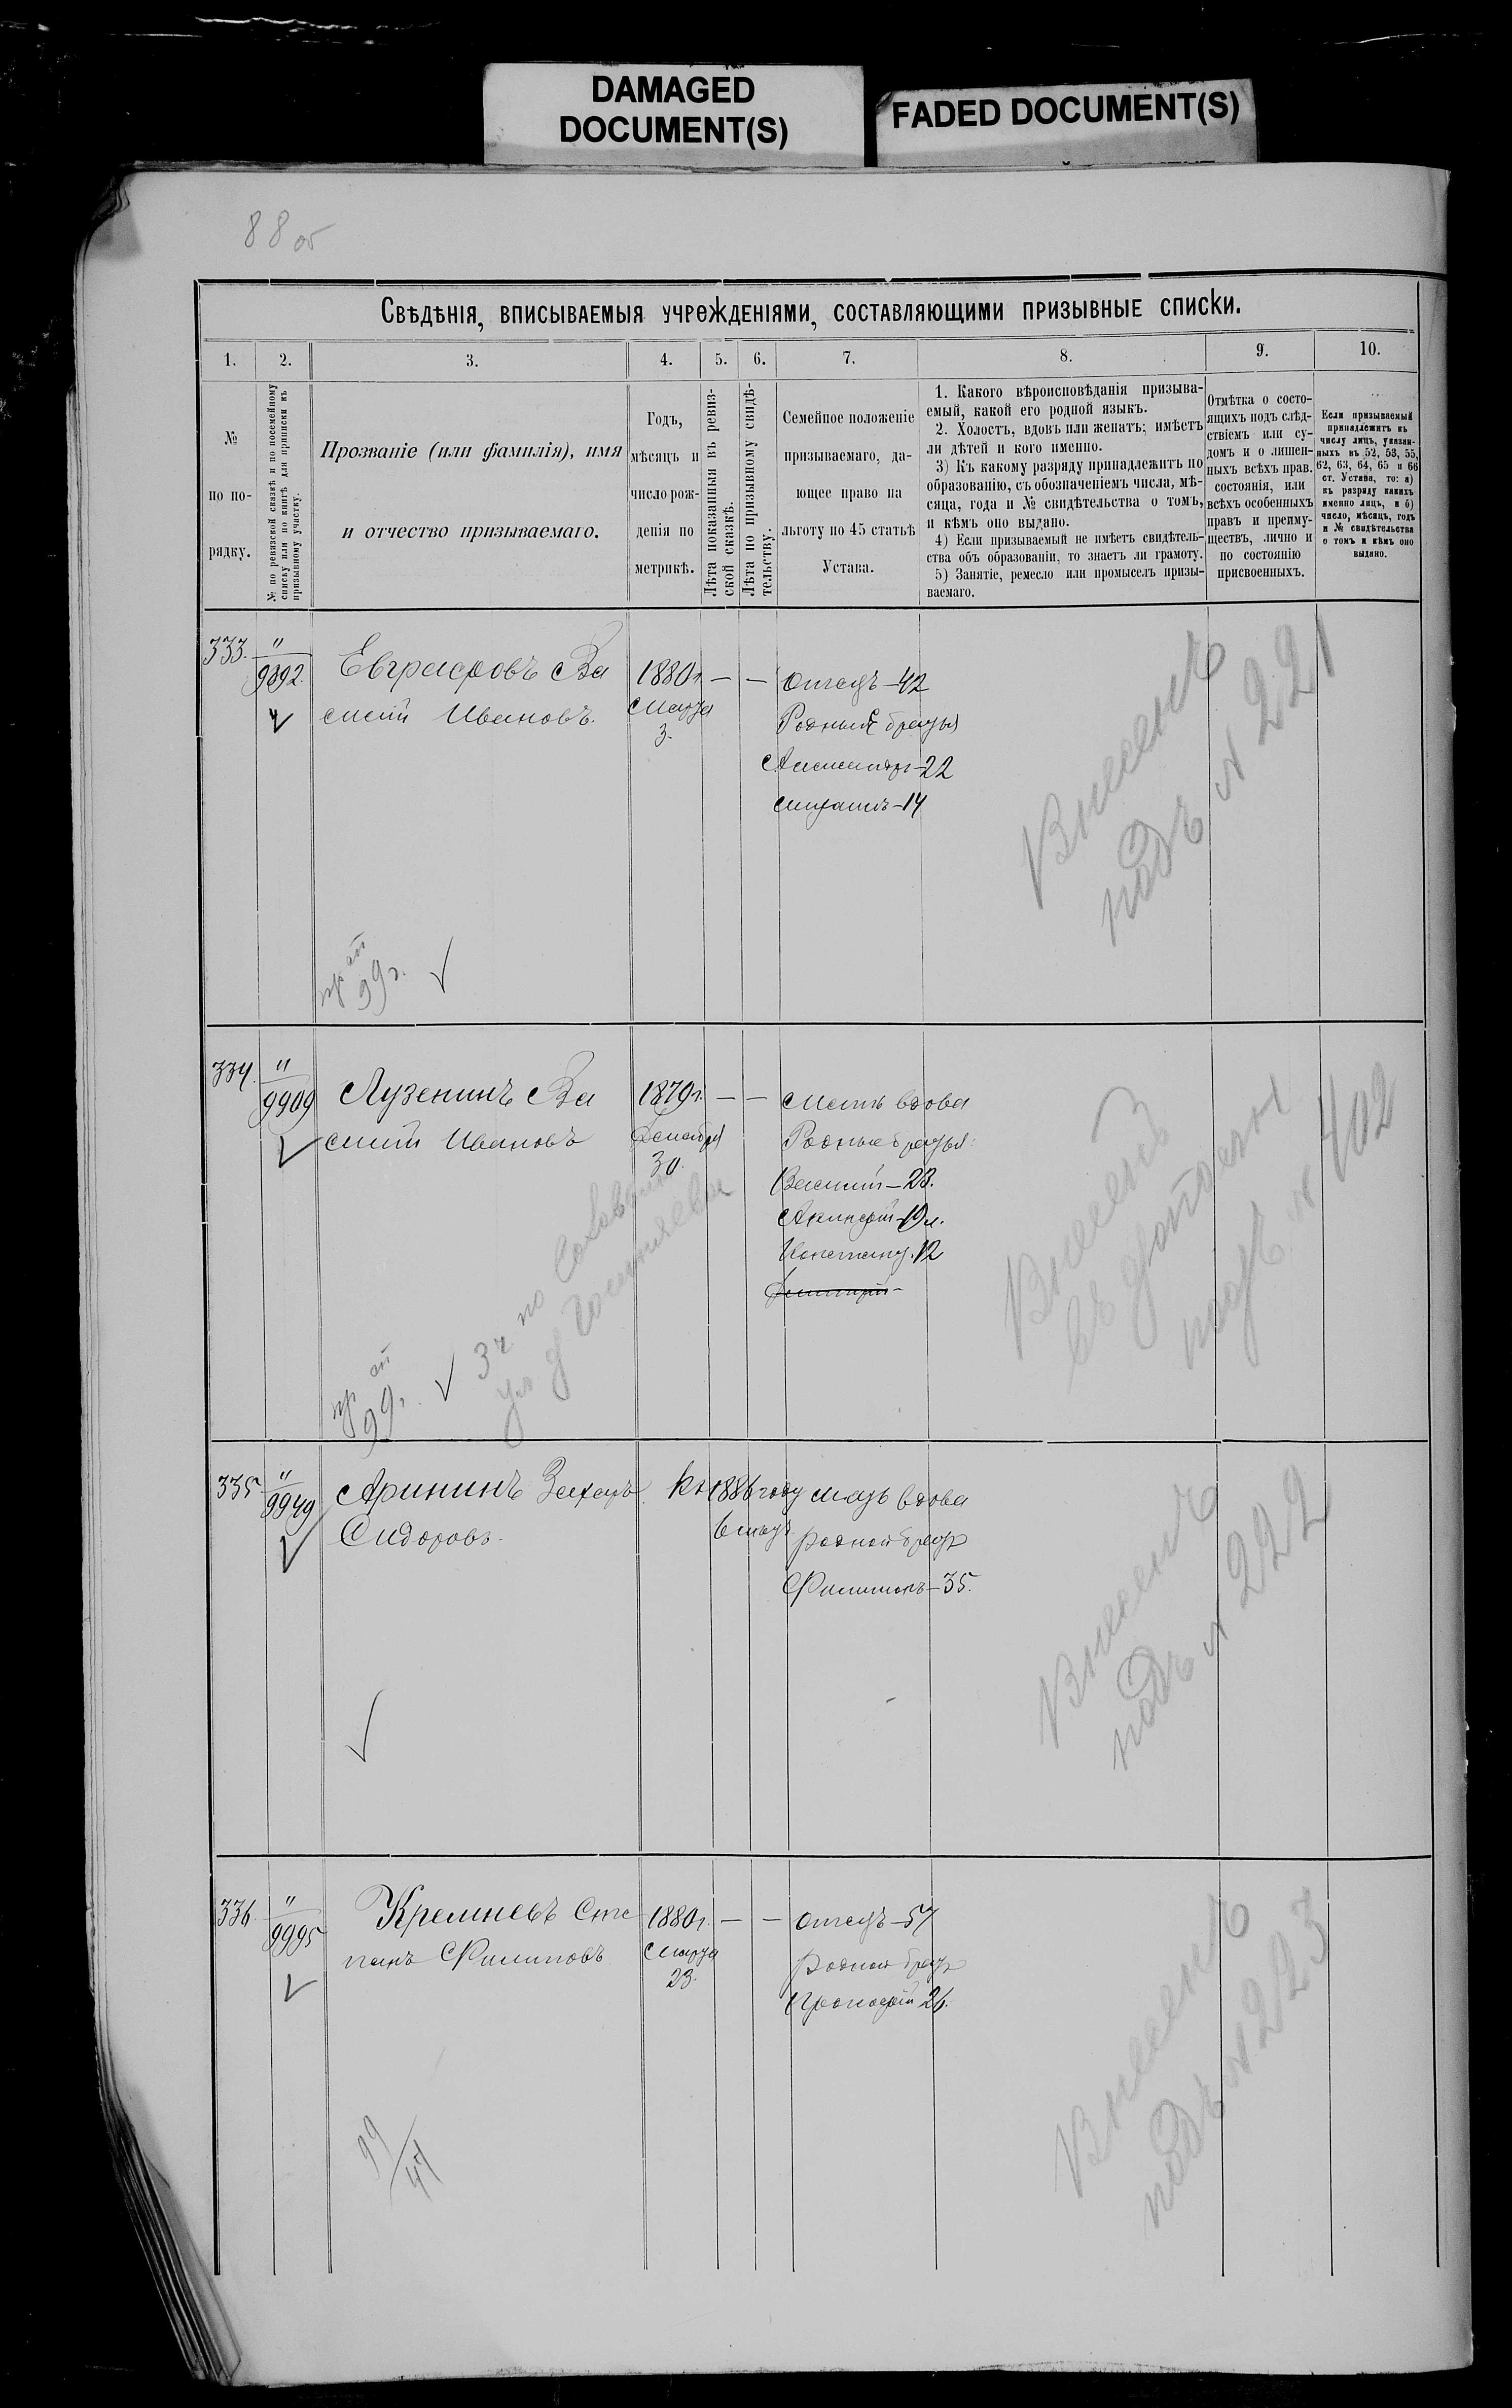 DAMAGED
DOCUMENT(S)
FADED DOCUMENT(S)
88 об
Свѣдѣнія, вписываемыя учрежденіями, составляющими призывные списки.
1. 2. 3. 4. 5. 6. 7. 8. 9. 10.
№
по по-
рядку.
№ по ревизской сказкѣ и по посемейному
списку или по книгѣ для приписки къ
призывному участку.
Прозваніе (или фамилія), имя
и отчество призываемаго.
Годъ,
мѣсяцъ и
число рож-
денія по
метрикѣ.
Лѣта показанныя въ ревиз-
ской сказкѣ.
Лѣта по призывному свидѣ-
тельству.
Семейное положеніе
призываемаго, да-
ющее право на
льготу по 45 статьѣ
Устава.
1. Какого вѣроисповѣданія призыва-
емый, какой его родной языкъ.
2. Холостъ, вдовъ или женатъ; имѣетъ
ли дѣтей и кого именно.
3) Къ какому разряду принадлежитъ по
образованію, съ обозначеніемъ числа, мѣ-
сяца, года и № свидѣтельства о томъ,
и кѣмъ оно выдано.
4) Если призываемый не имѣетъ свидѣтель-
ства объ образованіи, то знаетъ ли грамоту.
5) Занятіе, ремесло или промыселъ призы-
ваемаго.
Отмѣтка о состо-
ящихъ подъ слѣд-
ствіемъ или су-
домъ и о лишен-
ныхъ всѣхъ прав.
состоянія, или
всѣхъ особенныхъ
правъ и преиму-
ществъ, лично и
по состоянію
присвоенныхъ.
Если призываемый
принадлежитъ къ
числу лицъ, указан-
ныхъ въ 52, 53, 55,
62, 63, 64, 65 и 66
ст. Устава, то: а)
къ разряду какихъ
именно лицъ, и б)
число, мѣсяцъ, годъ
и № свидѣтельства
о томъ и кѣмъ оно
выдано.
333. " 9892. Евграфовъ Ва
силій Ивановъ.
1880 г. — —
Марта
3.
Отецъ - 42
Родные братья
Александръ - 22
Михаилъ - 14
Внесенъ
подъ № 221
99 г.
334. " 9909 Лузенинъ Ва
силій Ивановъ
1879 г. — —
Декабря
30.
Мать вдова
Родные братья:
Василій - 23.
19 л.
Констант. 12
Дмитрій -
Внесенъ
подъ № 402
99 г. 3 ч по
335 " 9949 Арининъ Захаръ
Сидоровъ.
къ 1886 году
6 лѣтъ
Мать вдова
родной братъ
Филимонъ - 35.
Внесенъ
подъ № 222
336 " 9995 Кремневъ Сте
панъ Филиповъ
1880 г. — —
Марта
23.
Отецъ - 57
родной братъ
Прокофій 26.
Внесенъ
подъ № 223
99/47